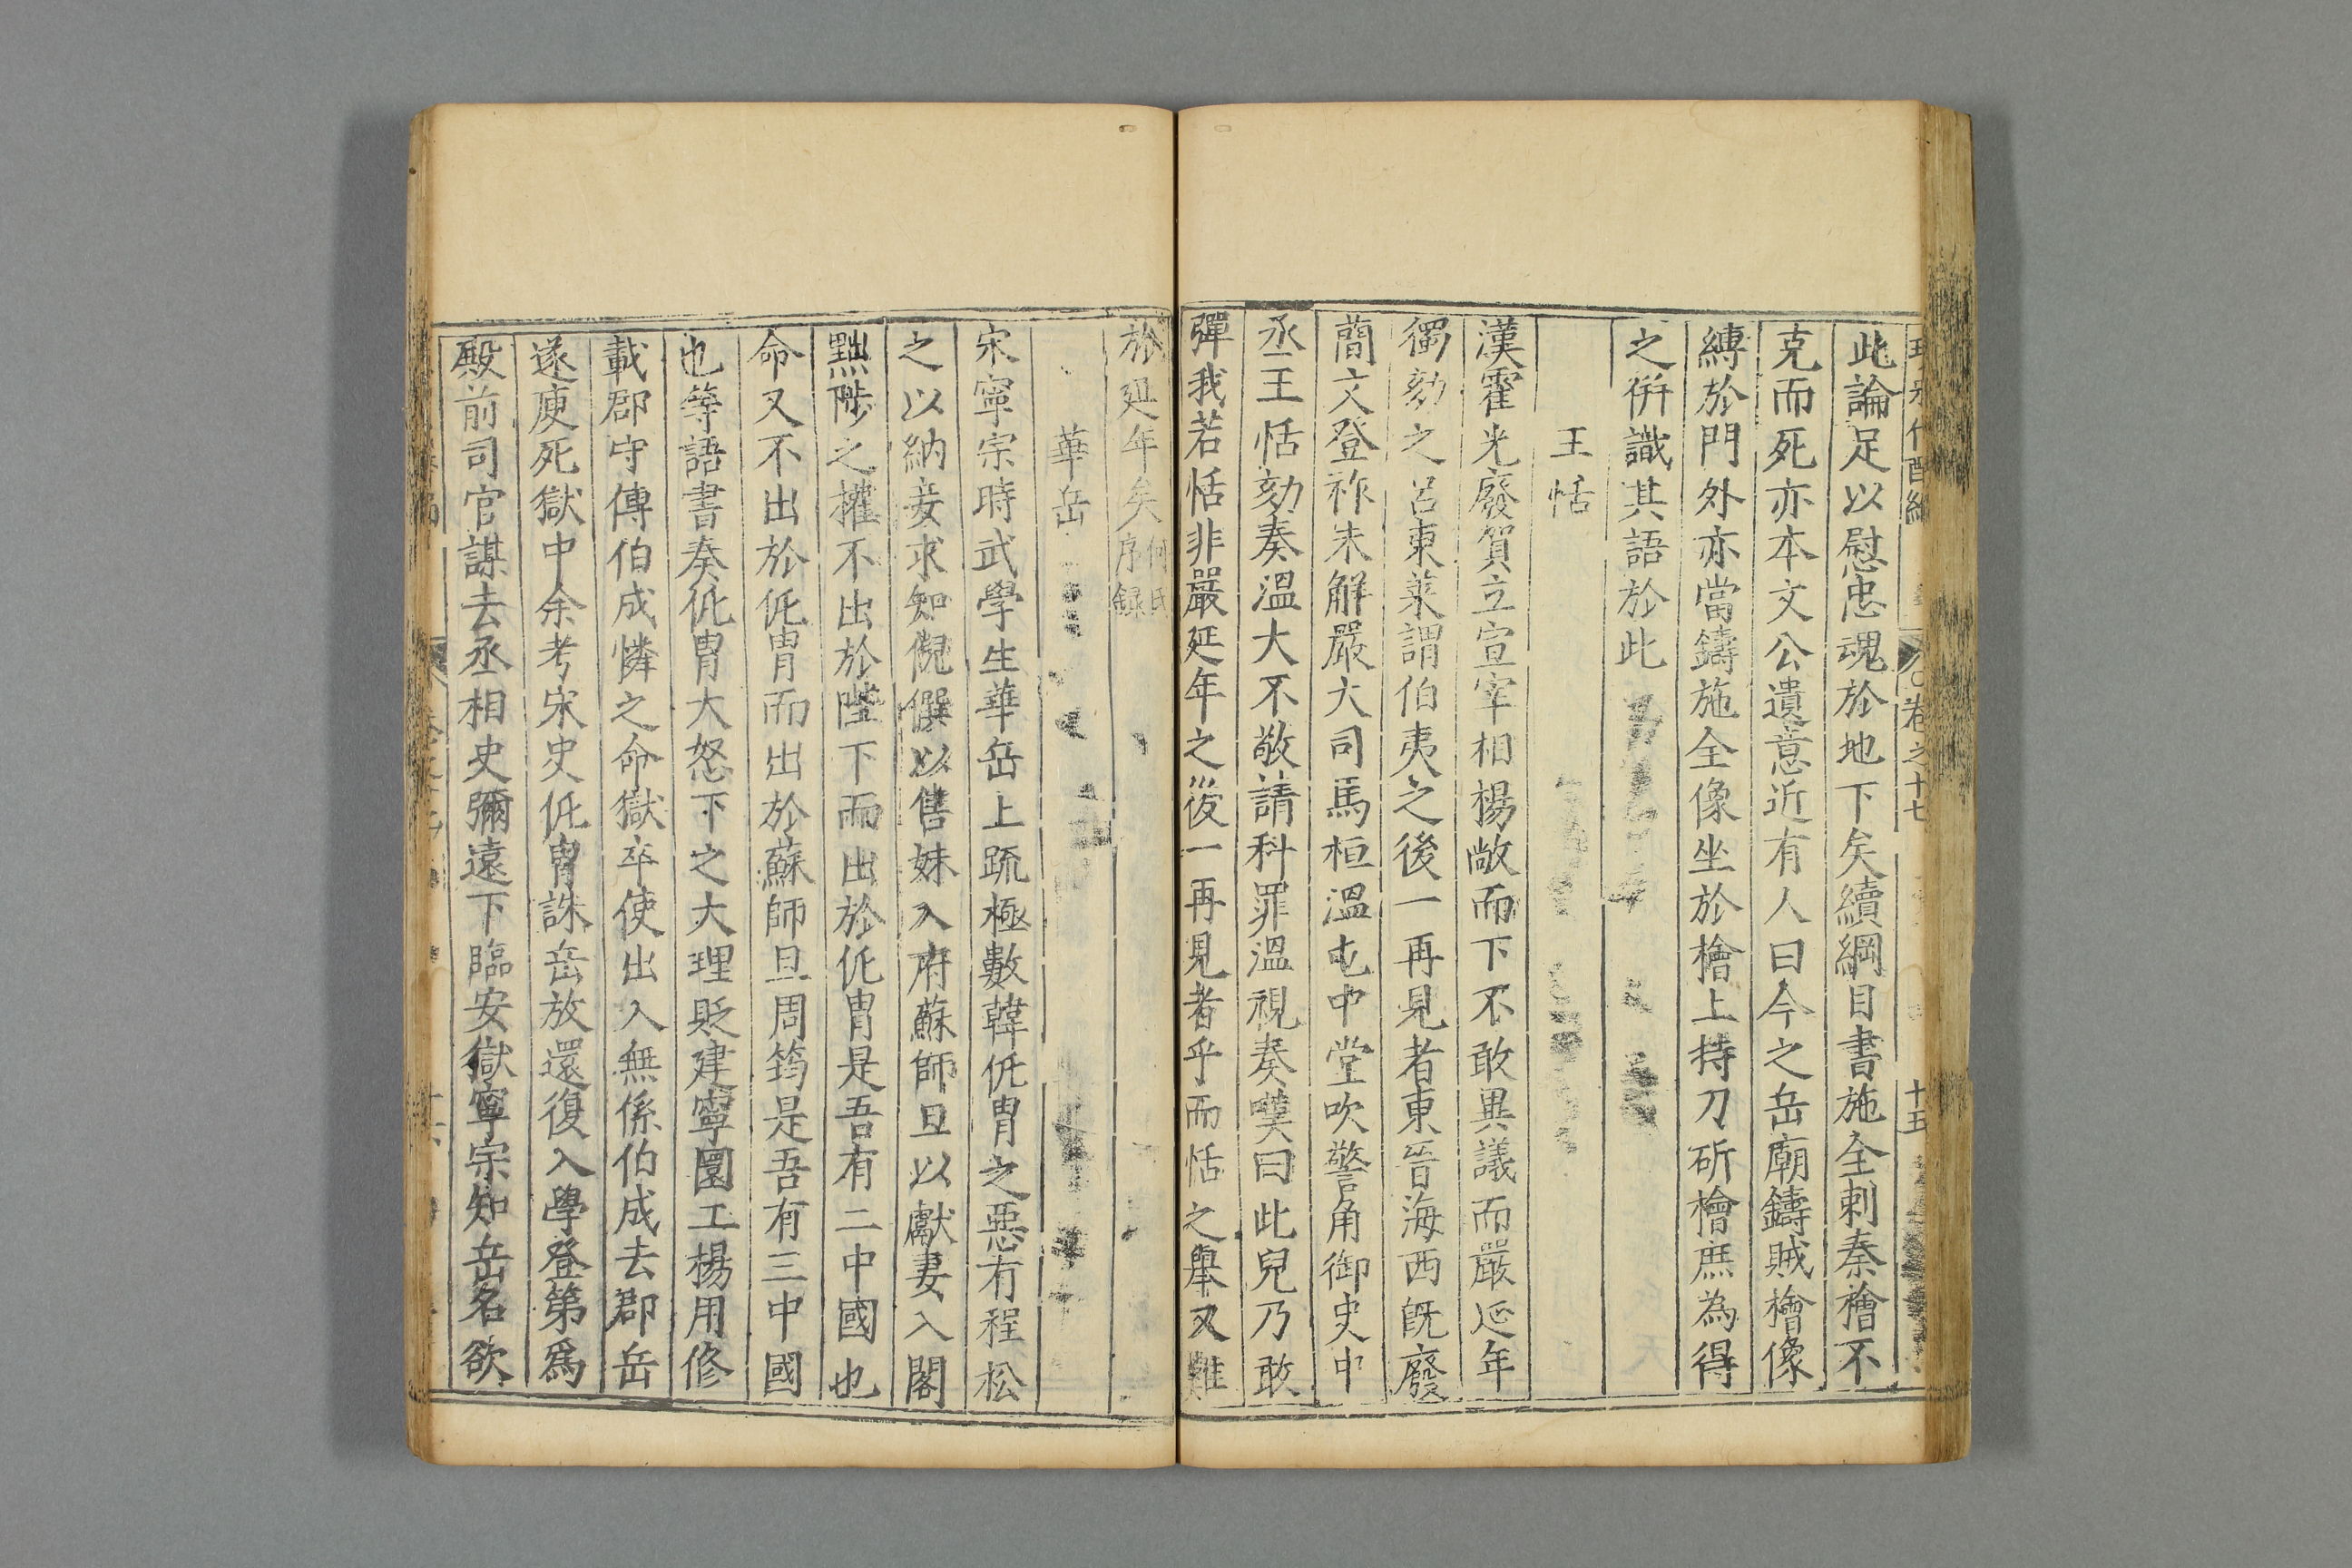 卷之十七 十五
此論足以慰忠魂於地下矣續綱目書施全刺秦檜不
克而死亦本文公遺意近有人曰今之岳廟鑄賊檜像
縛於門外亦當鑄施全像坐於檜上持刀斫檜庶為得
之併識其語於此
王恬
漢霍光廢賀立宣宰相楊敞而下不敢異議而嚴延年
獨劾之呂東萊謂伯夷之後一再見者東晉海西旣廢
簡文登祚未解嚴大司馬桓溫屯中堂吹警角御史中
丞王恬劾奏溫大不敬請科罪溫視奏嘆曰此兒乃敢
彈我若恬非嚴延年之後一再見者乎而恬之舉又難
於延年矣何氏序録
華岳
宋寧宗時武學生華岳上疏極數韓侂胄之惡有程松
之以納妾求知倪僎以售妹入府蘇師旦以獻妻入閣
黜陟之權不出於陛下而出於侂胄是吾有二中國也
命又不出於侂胄而出於蘇師旦周筠是吾有三中國
也等語書奏侂胄大怒下之大理貶建寧圜土楊用修
載郡守傅伯成憐之命獄卒使出入無係伯成去郡岳
遂庾死獄中余考宋史侂胄誅岳放還復入學登第爲
殿前司官謀去丞相史彌遠下臨安獄寧宗知岳名欲